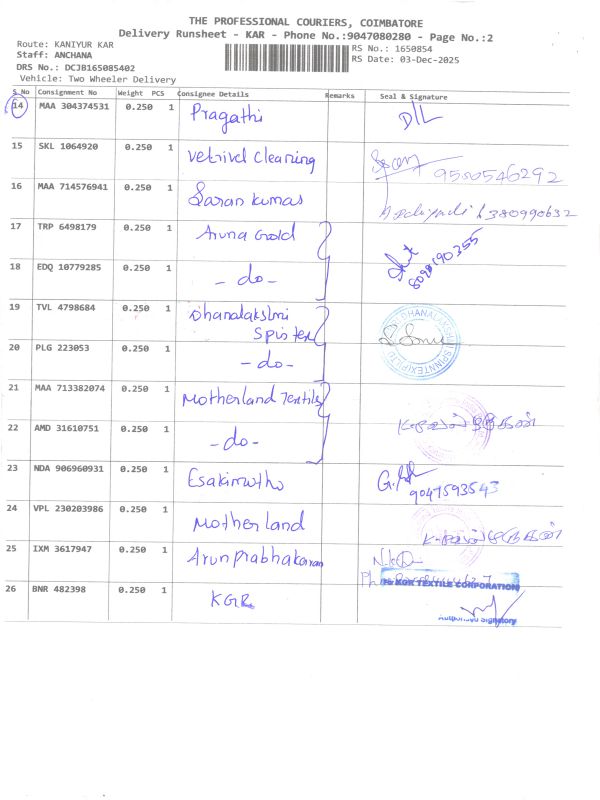 THE PROFESSIONAL COURIERS, COIMBATORE
Delivery Runsheet - KAR - Phone No.:9047080280 - Page No.:2
Route: KANIYUR KAR
RS No.: 1650854
Staff: ANCHANA
RS Date: 03-Dec-2025
DRS No.: DCJB165085402
Vehicle: Two Wheeler Delivery
S No Consignment No Weight PCS Consignee Details Remarks Seal & Signature
14 MAA 304374531 0.250 1 Pragathi D/L
15 SKL 1064920 0.250 1 Vetrivel Cleaning 9580546292
16 MAA 714576941 0.250 1 Saran kumar
17 TRP 6498179 0.250 1 Aruna Gold 8098190355
18 EDQ 10779285 0.250 1 - do -
19 TVL 4798684 0.250 1 Dhanalakshmi
Spintex
20 PLG 223053 0.250 1 - do -
21 MAA 713382074 0.250 1 Motherland Textile
22 AMD 31610751 0.250 1 - do -
23 NDA 906960931 0.250 1 Esakimuthu 9047593543
24 VPL 230203986 0.250 1 Motherland
25 IXM 3617947 0.250 1 Arunprabhakaran
26 BNR 482398 0.250 1 KGR
TEXTILE CORPORATION
Authorised Signatory